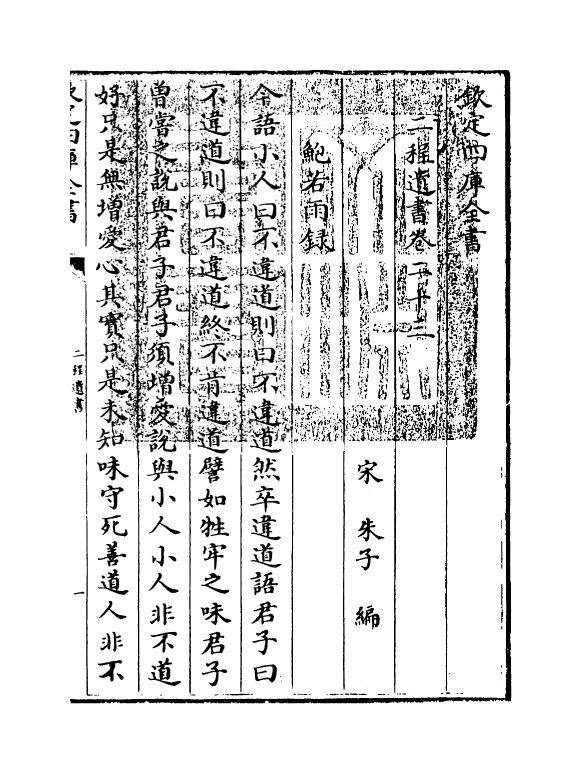 欽定四庫全書
二程遺書卷二十三
宋 朱子 編
鮑若雨録
今語小人曰不違道則曰不違道然卒違道語君子曰
不違道則曰不違道終不肯違道譬如牲牢之味君子
曽嘗之說與君子君子須増愛說與小人小人非不道
好只是無増愛心其實只是未知味守死善道人非不
欽定四庫全書
二程遺書
一